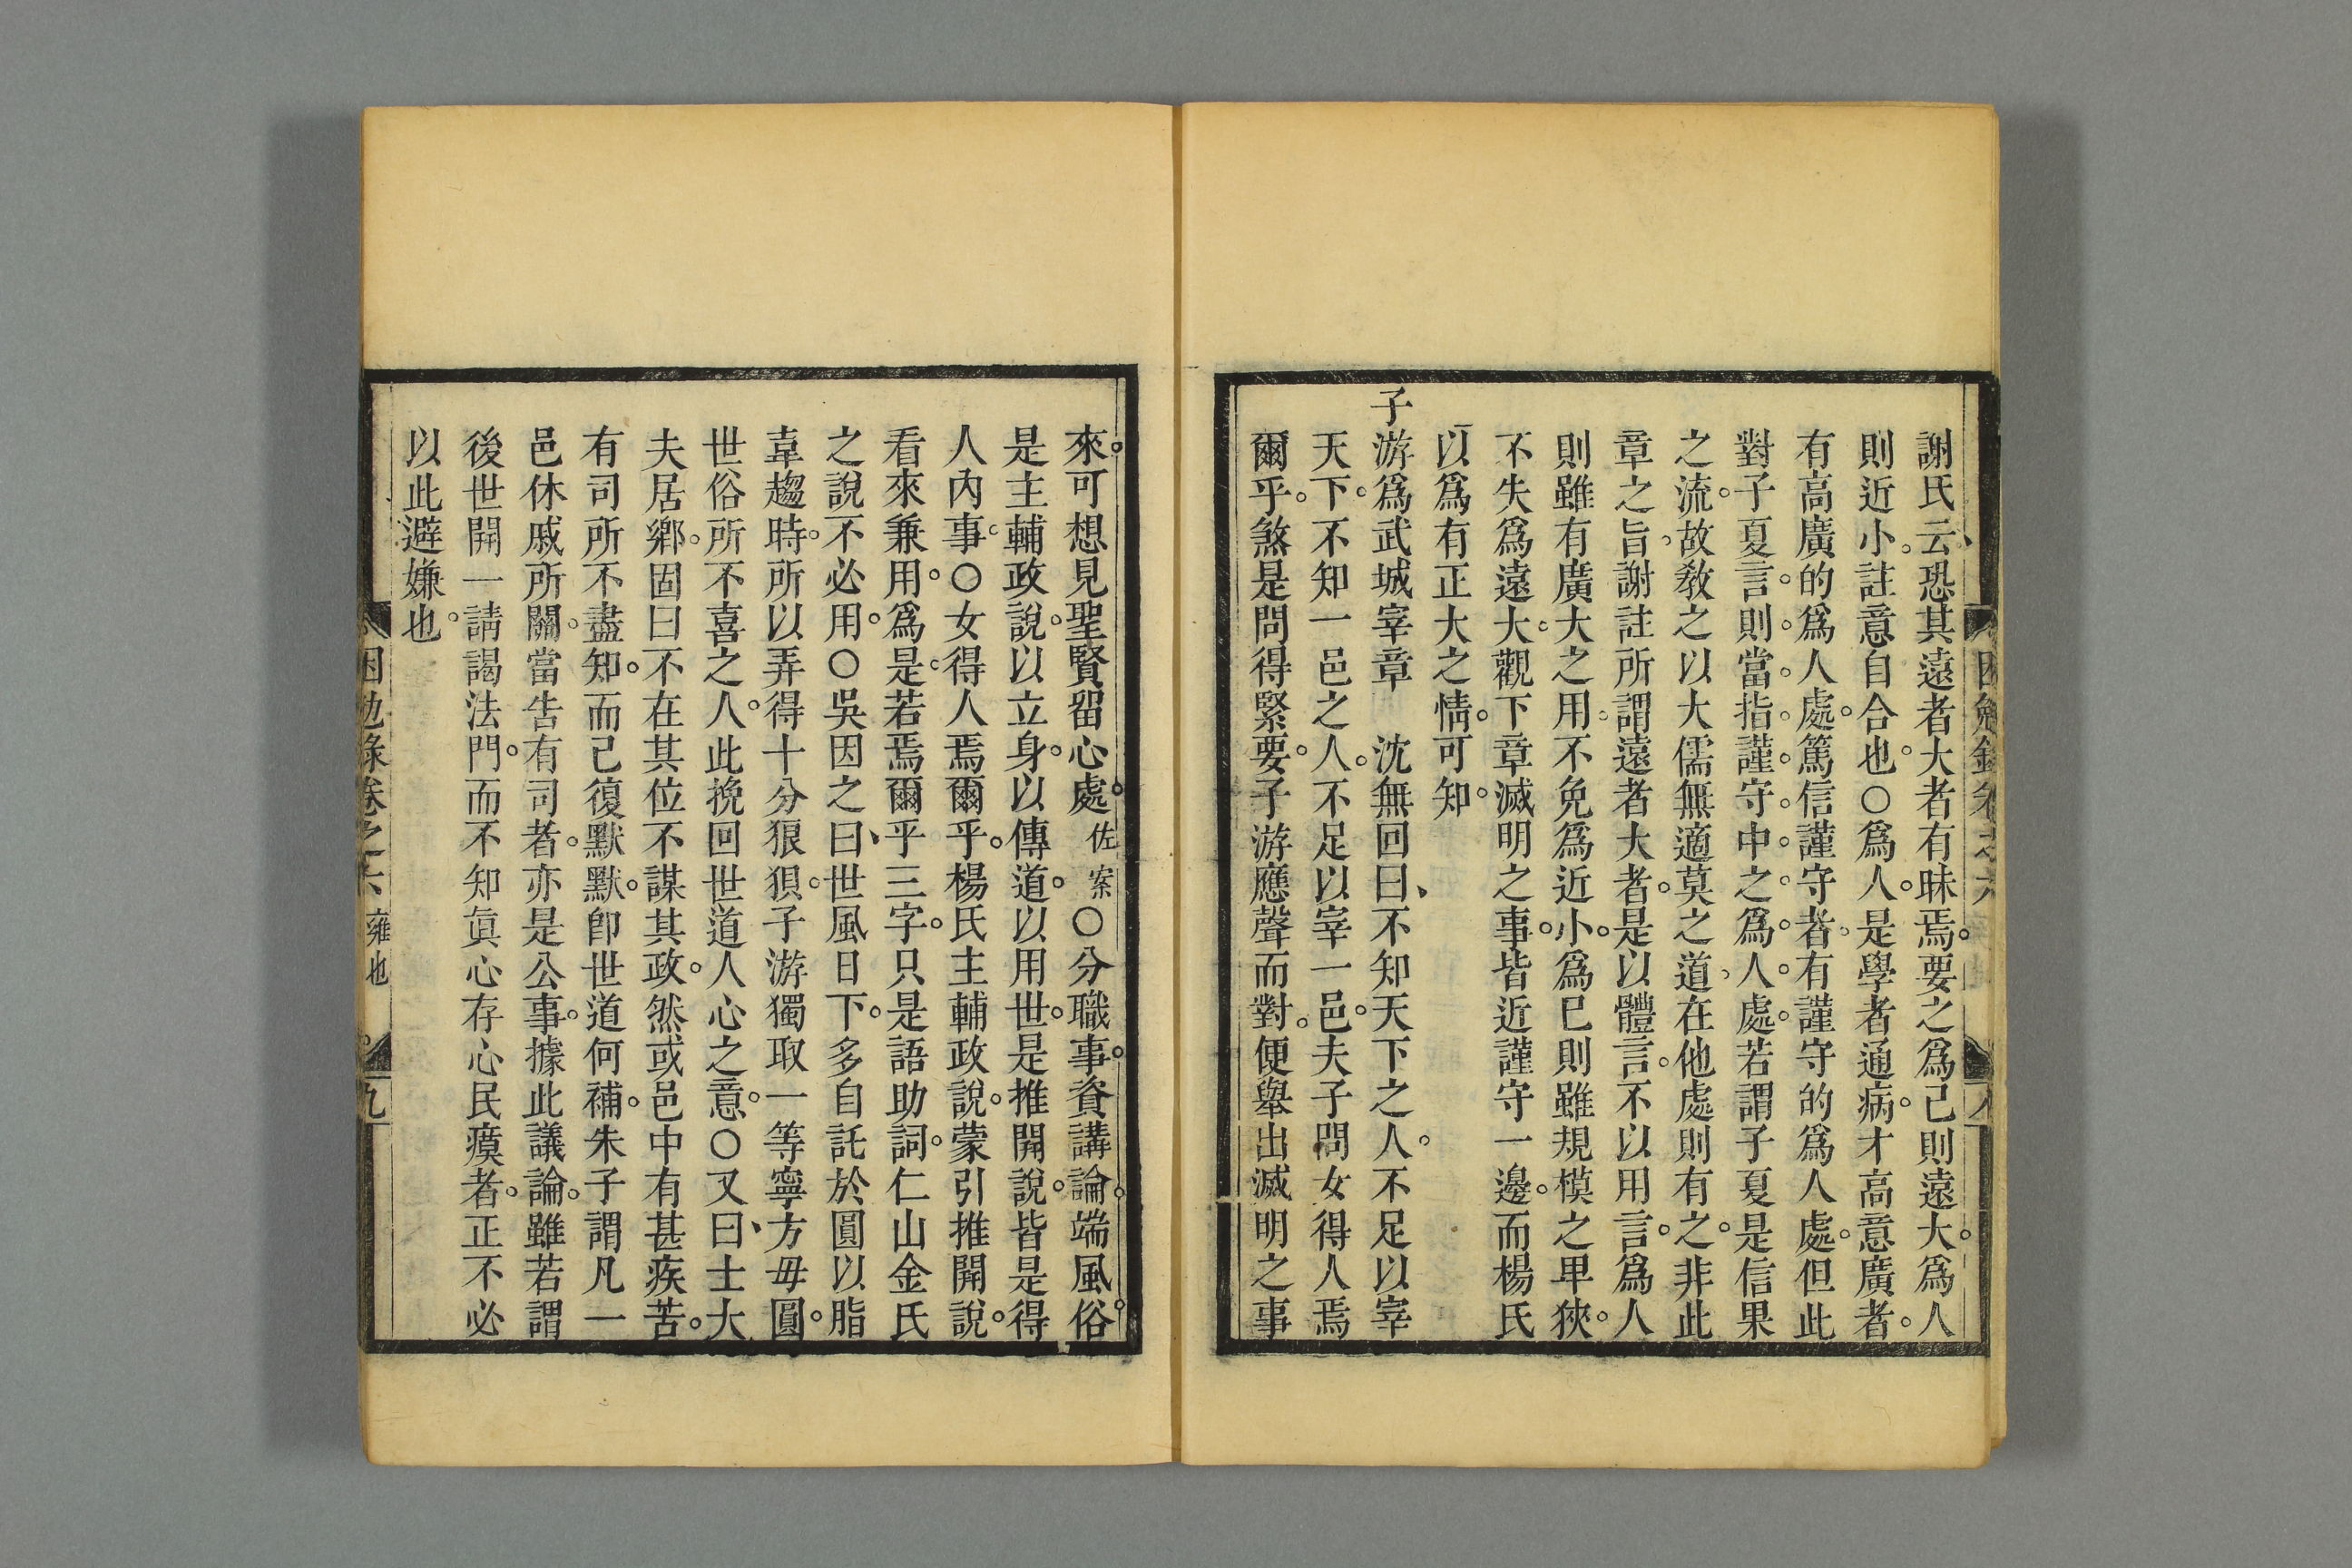 謝氏云、恐其遠者大者有昧焉。要之爲己則遠大。爲人
則近小。註意自合也。○爲人。是學者通病。才高意廣者。
有高廣的爲人處。篤信謹守者。有謹守的爲人處。但此
對子夏言。則當指謹守中之爲人處。若謂子夏是信果
之流。故敎之以大儒無適莫之道、在他處則有之。非此
章之旨。謝註所謂遠者大者。是以體言。不以用言。爲人
則雖有廣大之用。不免爲近小。爲已則雖規模之卑狹。
不失爲遠大。觀下章滅明之事。皆近謹守一邊。而楊氏
以爲有正大之情。可知。
子游爲武城宰章　沈無回曰、不知天下之人。不足以宰
天下。不知一邑之人。不足以宰一邑。夫子問女得人焉
爾乎。煞是問得緊要。子游應聲而對。便舉出滅明之事
來。可想見聖賢留心處。佐案○分職事。資講論。端風俗。
是主輔政說。以立身。以傳道。以用世。是推開說。皆是得
人內事。○女得人焉爾乎。楊氏主輔政說。蒙引推開說。
看來兼用。爲是。若焉爾乎三字。只是語助詞。仁山金氏
之說不必用。○吳因之曰、世風日下。多自託於圓。以脂
韋趨時。所以弄得十分狼狽。子游獨取一等寧方毋圓。
世俗所不喜之人。此挽回世道人心之意。○又曰、士大
夫居鄉。固曰不在其位不謀其政。然或邑中有甚疾苦。
有司所不盡知。而己復默默。卽世道何補。朱子謂凡一
邑休戚所關。當告有司者。亦是公事。據此議論。雖若謂
後世開一請謁法門。而不知眞心存心民瘼者。正不必
以此避嫌也。
困勉錄卷之六 雍也 九